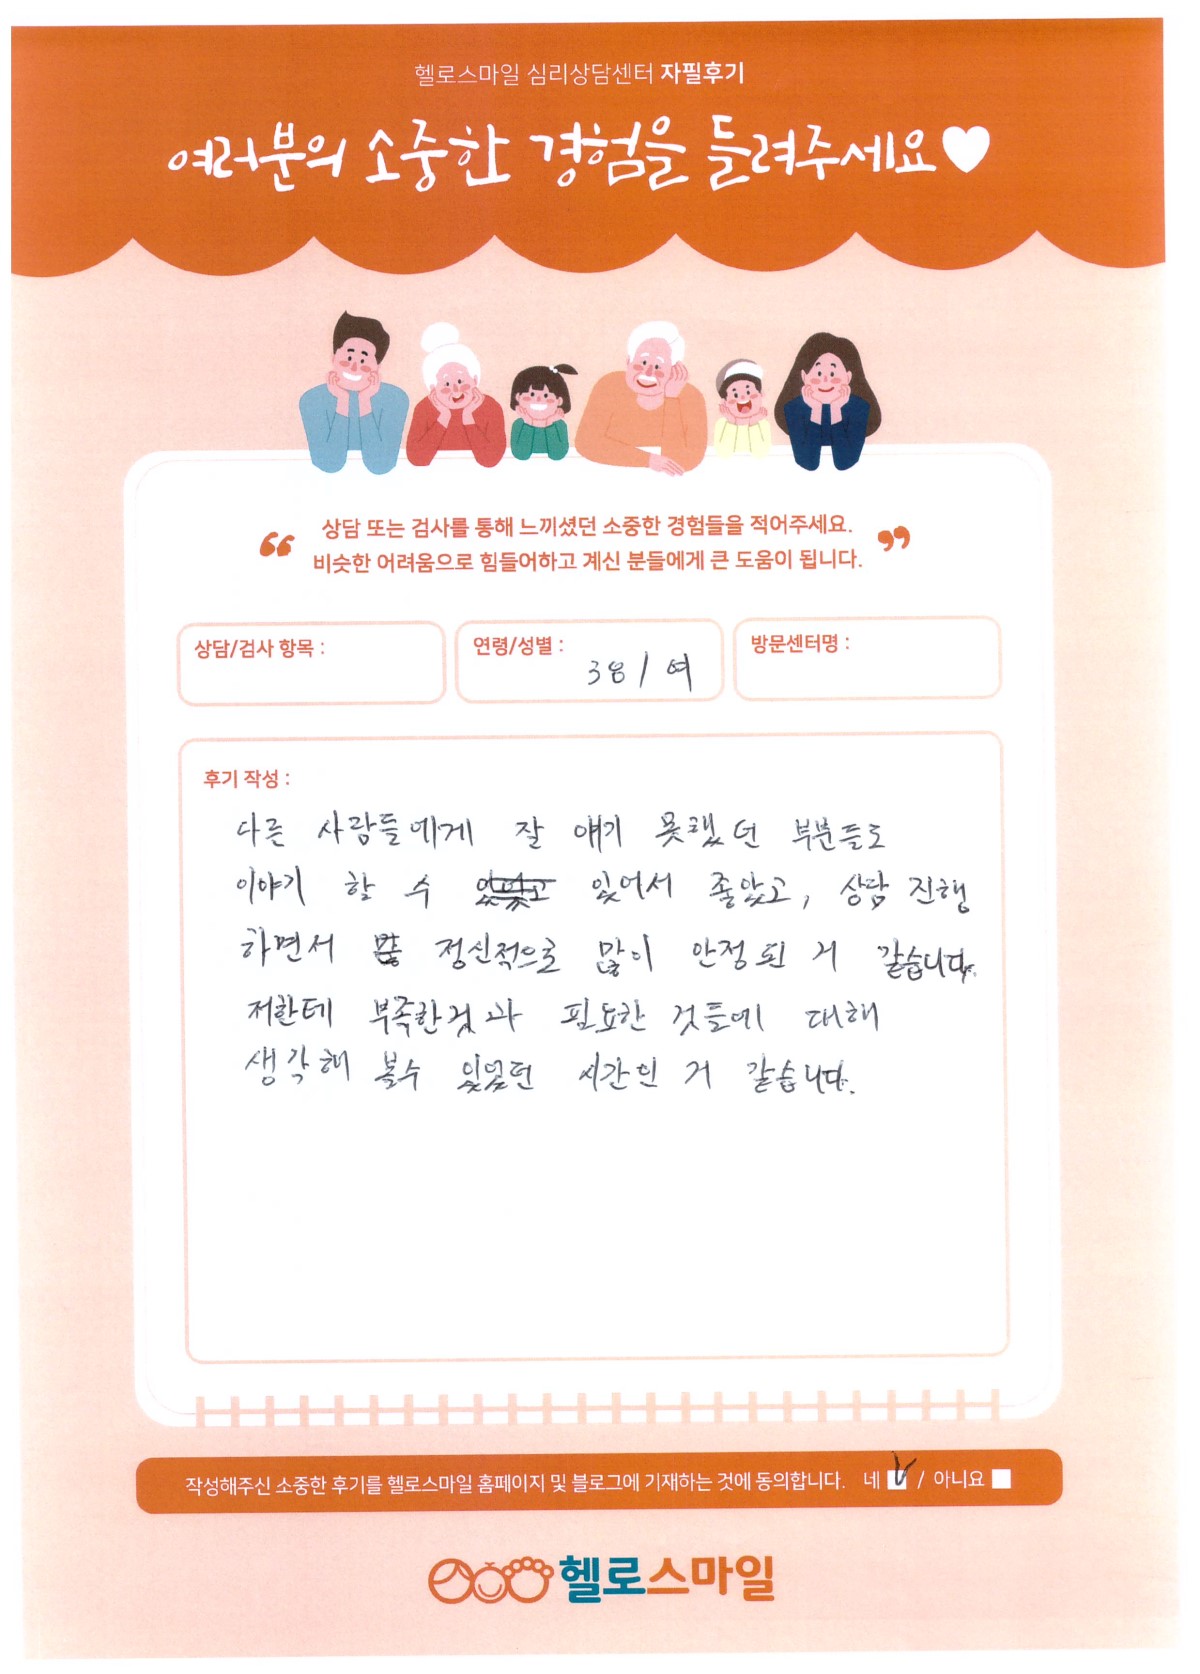 헬로스마일 심리상담센터 자필후기
여러분의 소중한 경험을 들려주세요♥
“ 상담 또는 검사를 통해 느끼셨던 소중한 경험들을 적어주세요. ”
비슷한 어려움으로 힘들어하고 계신 분들에게 큰 도움이 됩니다.
상담/검사 항목 :
연령/성별 : 38 / 여
방문센터명 :
후기 작성 :
다른 사람들에게 잘 얘기 못했던 부분들도
이야기 할 수 있어서 좋았고, 상담 진행
하면서 정신적으로 많이 안정된 거 같습니다.
저한테 부족한것과 필요한 것들에 대해
생각해 볼수 있었던 시간인 거 같습니다.
작성해주신 소중한 후기를 헬로스마일 홈페이지 및 블로그에 기재하는 것에 동의합니다. 네 V / 아니요
헬로스마일